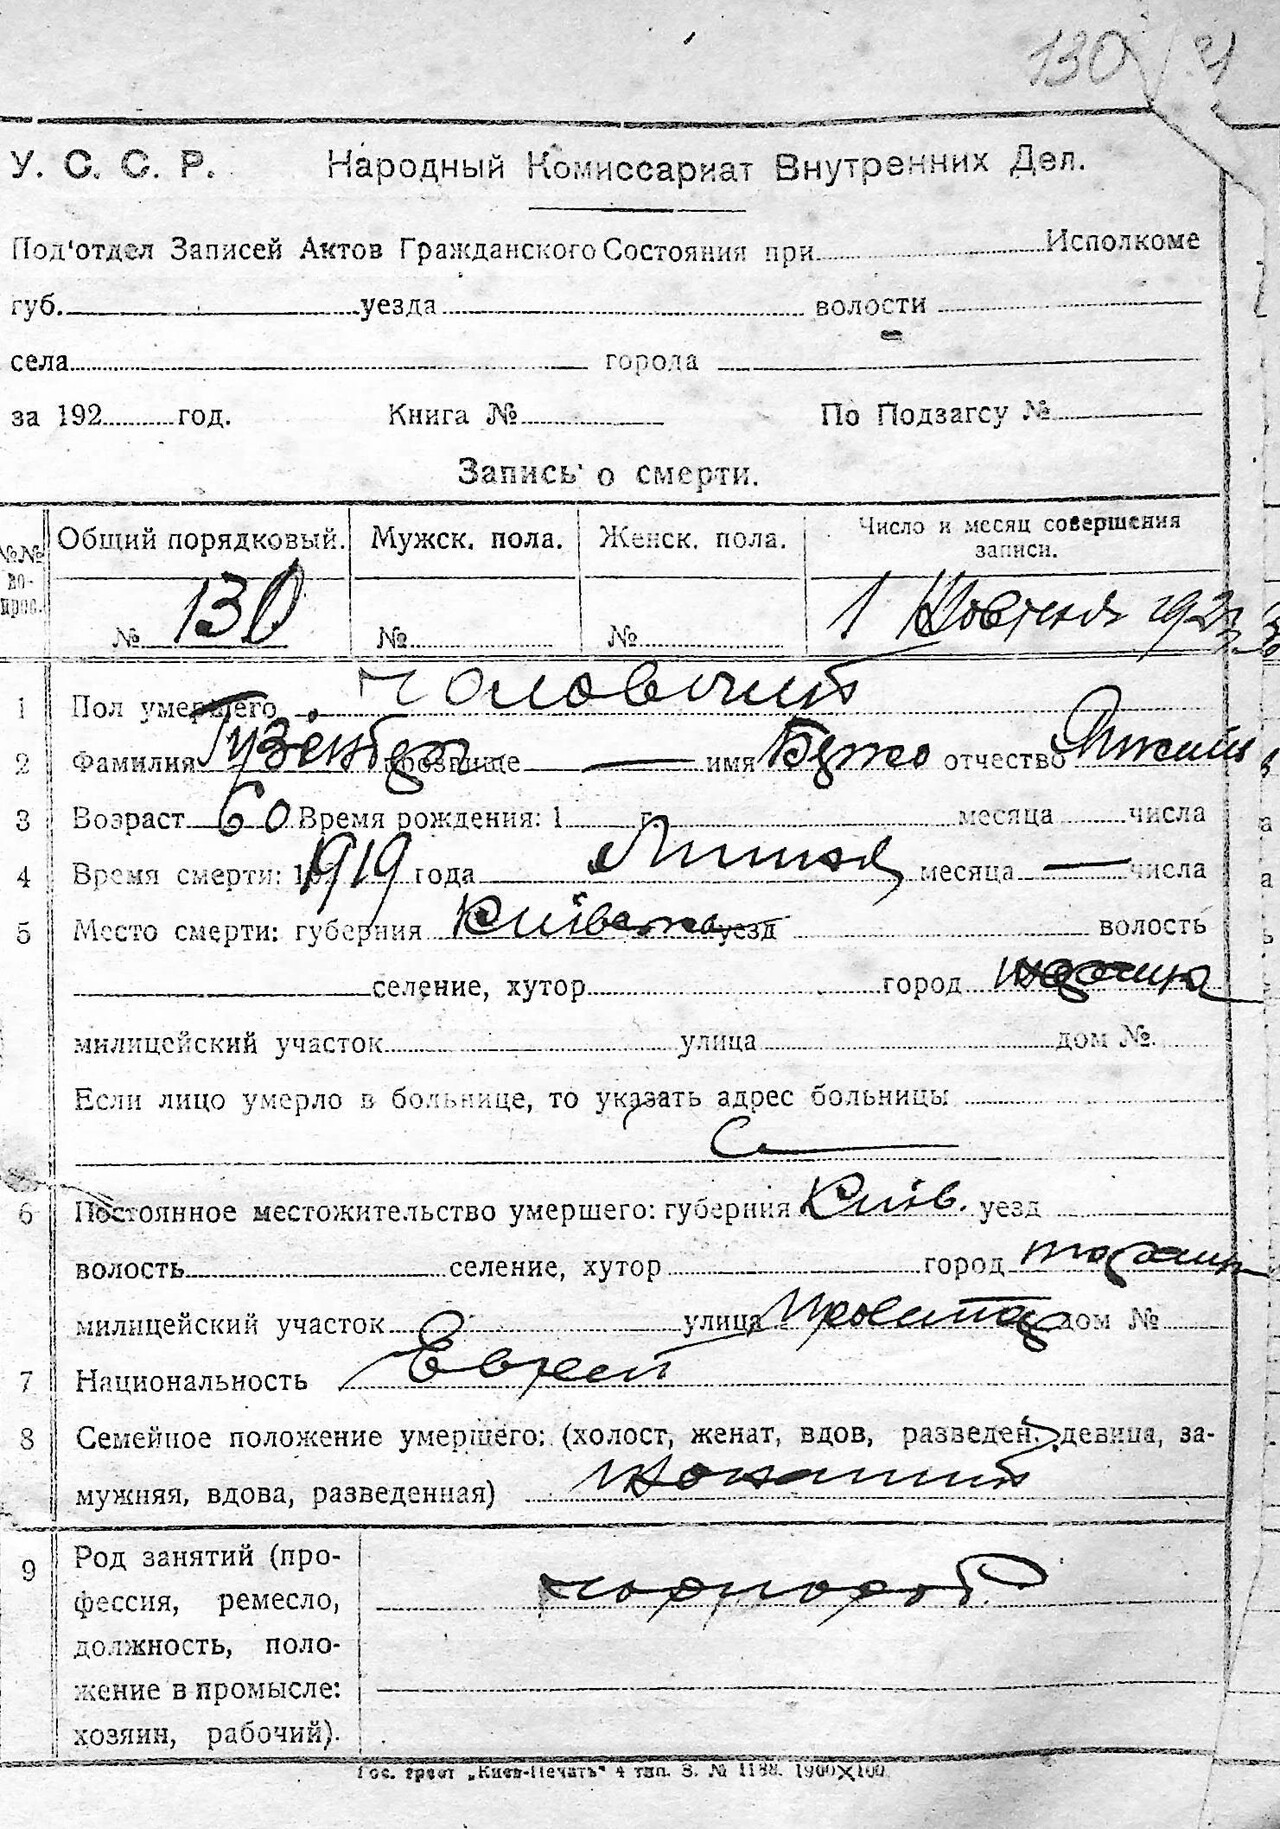 130
У. С. С. Р. Народный Комиссариат Внутренних Дел.
Под'отдел Записей Актов Гражданского Состояния при Исполкоме
губ. уезда волости
села города
за 192 год. Книга № По Подзагсу №
Запись о смерти.
№№ во- прос. Общий порядковый. Мужск. пола. Женск. пола. Число и месяц совершения записи.
№ 130 № № 1 Жовтня 192
1 Пол умершего чоловічий
2 Фамилия прозвище — имя отчество
3 Возраст 60 Время рождения: 1 г. месяца числа
4 Время смерти: 1919 года Липня месяца — числа
5 Место смерти: губерния Київська уезд волость
селение, хутор город
милицейский участок улица дом №
Если лицо умерло в больнице, то указать адрес больницы
6 Постоянное местожительство умершего: губерния Київ. уезд
волость селение, хутор город
милицейский участок улица дом №
7 Национальность Еврей
8 Семейное положение умершего: (холост, женат, вдов, разведен. девица, за-
мужняя, вдова, разведенная) жонатий
9 Род занятий (про-
фессия, ремесло,
должность, поло-
жение в промысле:
хозяин, рабочий).
чорнороб.
Гос. трест „Киев-Печать" 4 тип. З. № 1188. 1900×100